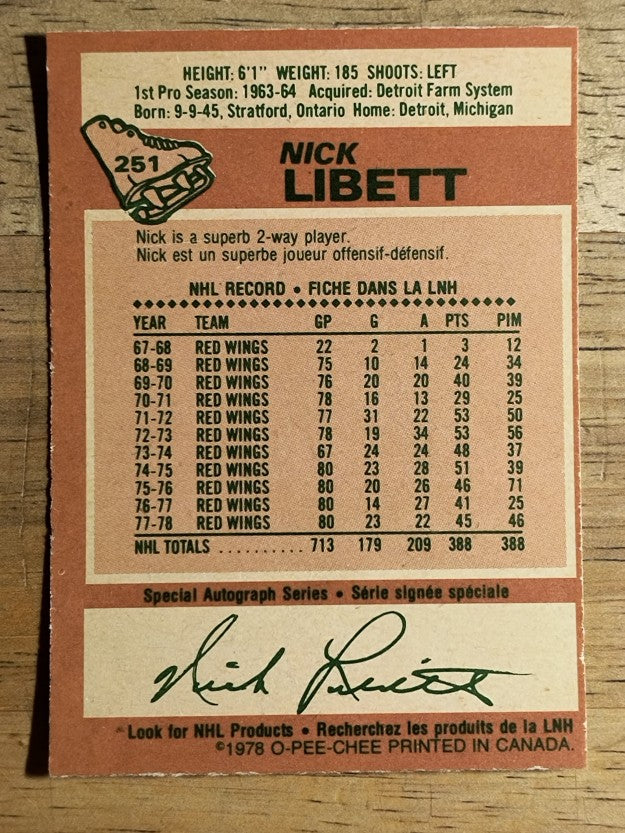 HEIGHT: 6'1" WEIGHT: 185 SHOOTS: LEFT
1st Pro Season: 1963-64 Acquired: Detroit Farm System
Born: 9-9-45, Stratford, Ontario Home: Detroit, Michigan
251
NICK
LIBETT
Nick is a superb 2-way player.
Nick est un superbe joueur offensif-défensif.
NHL RECORD • FICHE DANS LA LNH
YEAR TEAM GP G A PTS PIM
67-68 RED WINGS 22 2 1 3 12
68-69 RED WINGS 75 10 14 24 34
69-70 RED WINGS 76 20 20 40 39
70-71 RED WINGS 78 16 13 29 25
71-72 RED WINGS 77 31 22 53 50
72-73 RED WINGS 78 19 34 53 56
73-74 RED WINGS 67 24 24 48 37
74-75 RED WINGS 80 23 28 51 39
75-76 RED WINGS 80 20 26 46 71
76-77 RED WINGS 80 14 27 41 25
77-78 RED WINGS 80 23 22 45 46
NHL TOTALS .......... 713 179 209 388 388
Special Autograph Series • Série signée spéciale
Nick Libett
Look for NHL Products • Recherchez les produits de la LNH
©1978 O-PEE-CHEE PRINTED IN CANADA.